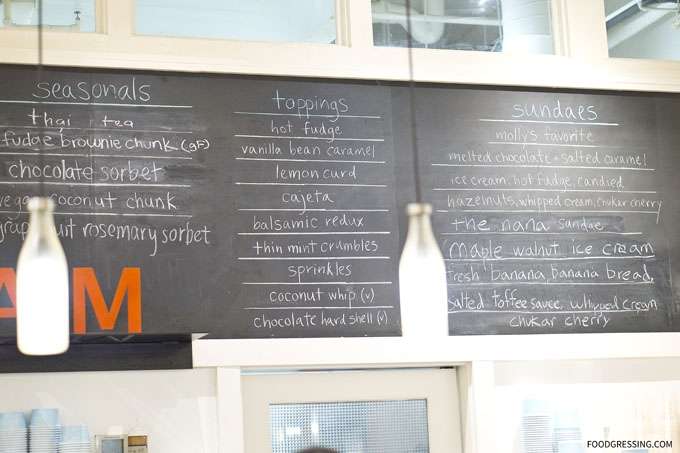 seasonals
thai tea
fudge brownie chunk (gF)
chocolate sorbet
vegan coconut chunk
grapefruit rosemary sorbet
AM
toppings
hot fudge
vanilla bean caramel
lemon curd
cajeta
balsamic redux
thin mint crumbles
sprinkles
coconut whip (v)
chocolate hard shell (v)
sundaes
molly's favorite
melted chocolate + salted caramel
ice cream, hot fudge, candied
hazelnuts, whipped cream, chukar cherry
the nana sundae
maple walnut ice cream
fresh banana, banana bread,
salted toffee sauce, whipped cream
chukar cherry
FOODGRESSING.COM